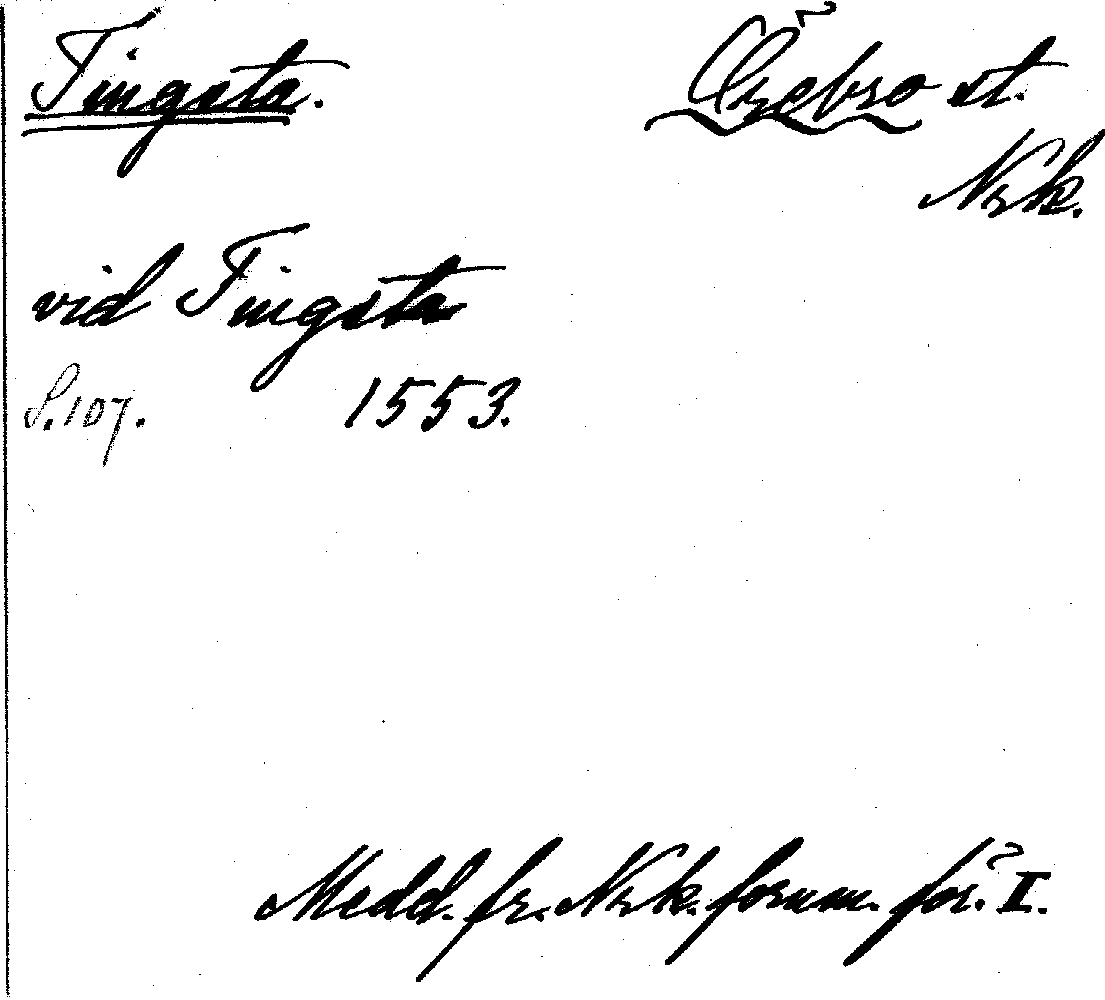 Tingsta. Örebro st.
Nrk.
vid Tingsta
S. 107. 1553.
Medd. fr. Nrk. fornm. för. I.